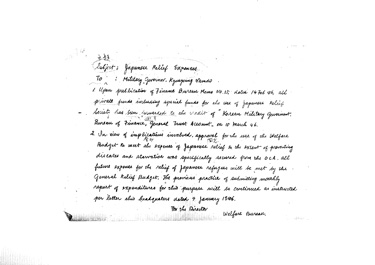 Subject: Japanese Relief Expenses
To : Military Governor, Kyunggi
1 Upon publication of Finance Bureau Memo dated 14 Feb 46, all
private funds including special funds for the use of Japanese Relief
Society has been to the credit of "Korean Military Government
Bureau of Finance, General Trust Account, on 10 March 46.
2 In view of implications involved, approval for the use of the Welfare
Budget to meet the expense of Japanese relief to the extent of preventing
disease and starvation was specifically secured from the O.C.A. All
future expense for the relief of Japanese refugees will be met by the
General Relief Budget. The previous practice of submitting monthly
report of expenditures for this purpose will be continued as instructed
per letter this headquarters dated 9 January 1946.
For the Director
Welfare Bureau